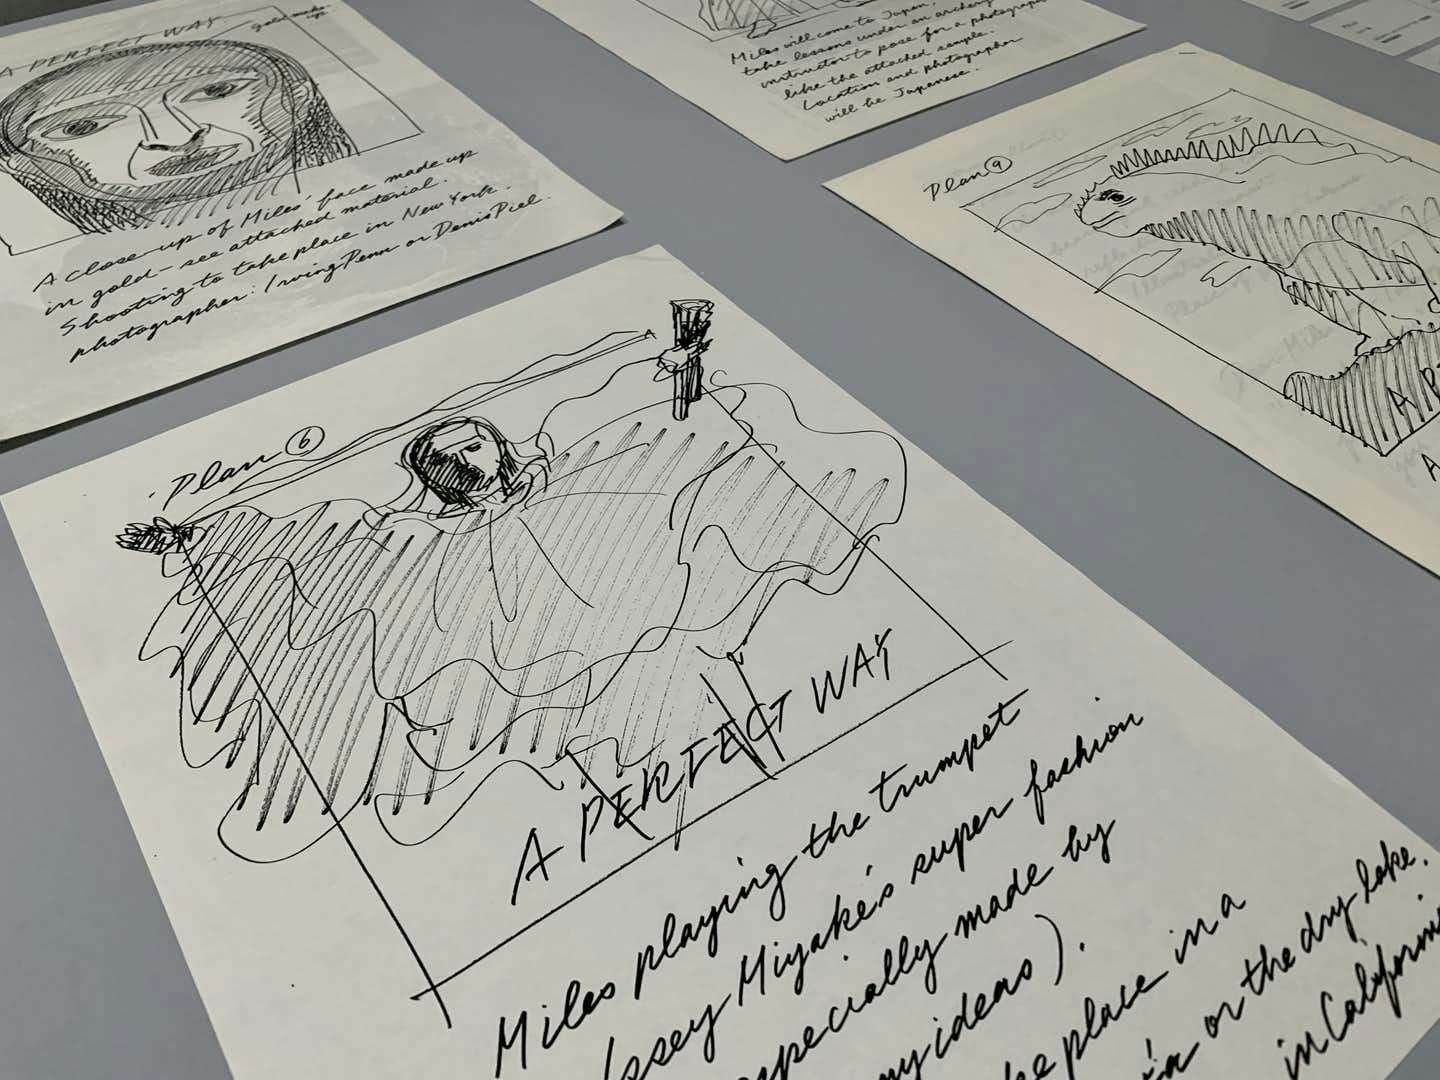 A PERFECT WAY.
gold make-
up
A close-up of Miles' face made up
in gold - see attached material.
Shooting to take place in New York.
photographer: Irving Penn or Denis Piel.
Miles will come to Japan,
take lessons under an archery
instructor to pose for a photograph
like the attached sample.
Location and photographer
will be Japanese.
Plan 9
A
A
Plan 6
A PERFECT WAY
Miles playing the trumpet
Issey Miyake's super fashion
especially made by
my ideas).
place in a
or the dry lake.
in California